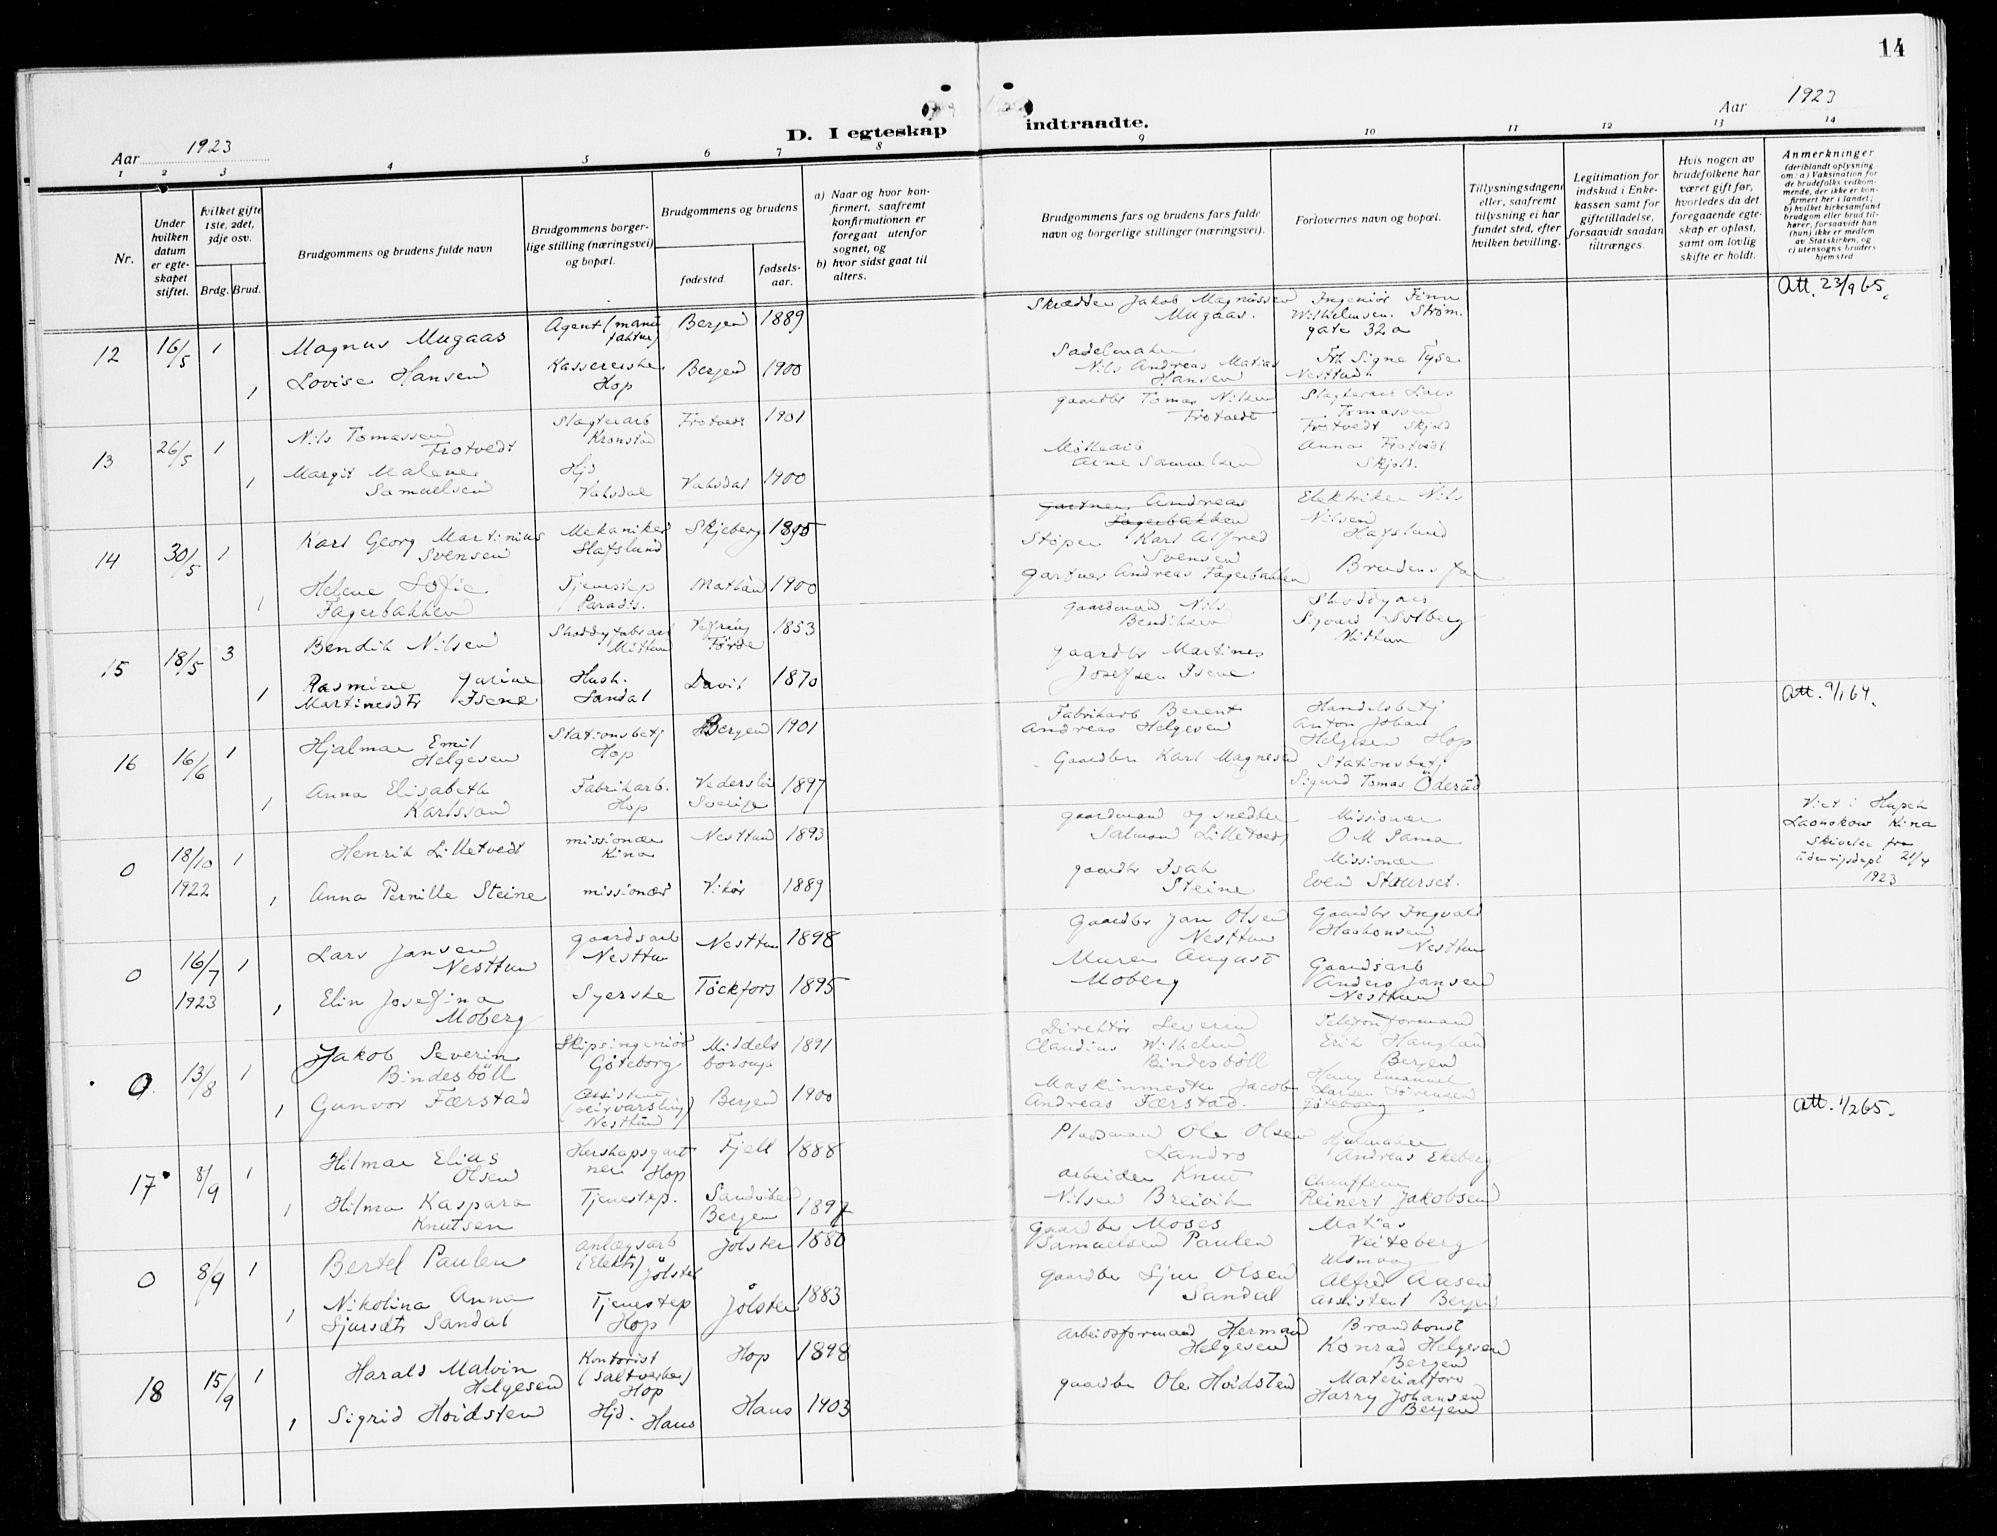 14
Aar 1923
D. I egteskap
indtraadte.
Aar 1923
1 2 3 4 5 6 7 8
9 10 11 12 13 14
Nr.
Under
hvilken
datum
er egte-
skapet
stiftet.
hvilket gifte
1ste, 2det,
3dje osv.
Brdg. Brud.
Brudgommens og brudens fulde navn
Brudgommens borger-
lige stilling (næringsvei)
og bopæl.
Brudgommens og brudens
fødested.
fødsels-
aar.
a) Naar og hvor kon-
firmert, saafremt
konfirmationen er
foregaat utenfor
sognet, og
b) hvor sidst gaat til
alters.
Brudgommens fars og brudens fars fulde
navn og borgerlige stillinger (næringsvei).
Forlovernes navn og bopæl.
Tillysningsdagene
eller, saafremt
tillysning ei har
fundet sted, efter
hvilken bevilling.
Legitimation for
indskud i Enke-
kassen samt for
giftetilladelse,
forsaavidt saadan
tiltrænges.
Hvis nogen av
brudefolkene har
været gift før,
hvorledes da det
foregaaende egte-
skap er opløst,
samt om lovlig
skifte er holdt.
Anmerkninger
(deriblandt oplysning
om: a) Vaksination for
de brudefolks vedkom-
mende, der ikke er kon-
firmert her i landet;
b) hvilket kirkesamfund
brudgom eller brud til-
hører, forsaavidt han
(hun) ikke er medlem
av Statskirken, og
c) utensogns bruders
hjemsted
12 16/5 1
Magnus Mugaas
Agent (manu
faktur)
Bergen 1889
Skrædder Jakob Magnussen
Mugaas.
Ingeniør Finn
Wilhelmsen. Strøm.
gate 32a
Att. 23/9 65.
1
Lovise Hansen
Kassererske
Hop
Bergen 1900
Sadelmaker
Nils Andreas Matias
Hansen
Frk Signe Tyse
Nesttun
13 26/5 1
Nils Tomassen
Frotvedt
Slagteriarb
Kronstad
Frotvedt 1901
gaardbr Tomas Nilsen
Frotvedt
Slagteriarb Lars
Tomassen
Frotvedt Skjold
1
Margit Malene
Samuelsen
Hjs
Vaksdal
Vaksdal 1900
Møllearb
Arne Samuelsen
Anna Frotvedt
Skjold.
14 30/5 1
Karl Georg Martinius
Svensen
Mekaniker
Hafslund
Skjeberg 1895
gartner Andreas
Fagerbakken
Støper Karl Alfred
Svensen
Elektriker Nils
Nilsen
Hafslund
1
Helene Sofie
Fagerbakken
Tjenestep
Paradis.
1900
Gartner Andreas Fagerbakken
Brudens far
15 18/5 3
Bendik Nilsen
Shoddyfabrarb
Mittun
Førde
1853
gaardmand Nils
Bendiksen
Sigvard Solberg
Mittun
1
Rasmine Gurine
Martinesdtr Isene
Hush.
Sandal
Davik 1870
gaardbr Martines
Josefsen Isene
16 16/6 1
Hjalmar Emil
Helgesen
Stationsbetj
Hop
Bergen 1901
Fabrikarb Berent
Andreas Helgesen
Handelsbetj
Anton Johan
Helgesen Hop
Att. 9/1 64.
1
Anna Elisabeth
Karlsson
Fabrikarb.
Hop
Sverige
1897
Gaardbr Karl Magnesen
Stationsbetj
Sigurd Tomas Öderåd
0 18/10
1922
1
Henrik Lilletvedt
missionær
Kina
Nesttun 1893
gaardmand og snedker
Salmon Lilletvedt
Missionær
O M Sama
Viet i Hupeh
Laohokow Kina
Skrivelse fra
Udenrigsdept 21/4
1923
1
Anna Pernille Steine
missionær
Vikør 1889
gaardbr Isak
Steine
Missionær
Even Staurset.
0 16/7
1923
1
Lars Jansen
Nesttun
gaardsarb
Nesttun
Nesttun 1898
Gaardbr Jan Olsen
Nesttun
Gaardbr Ingvald
Haakonsen
Nesttun
1
Elin Josefina
Moberg
Syerske
Töckfors 1895
Murer August
Moberg
Gaardsarb
Anders Jansen
Nesttun
0 13/8 1
Jakob Severin
Bindesbøll
Skipsingeniør
Göteborg
Middels
borough
1891
Direktør Severin
Claudius Wilhelm
Bindesbøll
Telefonformand
Erik Haugland
Bergen
1
Gunvor Færstad
Assistent
(veirvarsling)
Nesttun
Bergen 1900
Maskinmester Jacob
Andreas Færstad.
Henry Emanuel
Larsen Sørensen
Göteborg
17 8/9 1
Hilmar Elias
Olsen
Herskapsgart
ner Hop
Fjell 1888
Pladsmand Ole Olsen
Landro
Hjulmaker
Andreas Ekeberg
Att. 1/2 65.
1
Hilma Kaspara
Knutsen
Tjenestep.
Sandviken
Bergen
1897
arbeider Knut
Nilsen Breivik
Chauffeur
Reinert Jakobsen
0 8/9 1
Bertel Paulen
Anlægsarb
(Elektr)
Jølster
Jølster 1880
Gaardbr Moses
Samuelsen Paulen
Matias
Veiteberg
1
Nikolina Anna
Sjursdtr Sandal
Tjenestep
Hop
Jølster 1883
gaardbr Sjur Olsen
Sandal
Alfred Aasen
assistent Bergen
18 15/9 1
Harald Malvin
Helgesen
Kontorist
(Saltverket)
Hop
Hop 1898
Arbeidsformand Herman
Helgesen
Brandbonst
Konrad Helgesen
Bergen
1
Sigrid Hvidsten
Hjd. Haus
Haus 1903
gaardbr Ole Hvidsten
Materialforv
Harry Johansen
Bergen